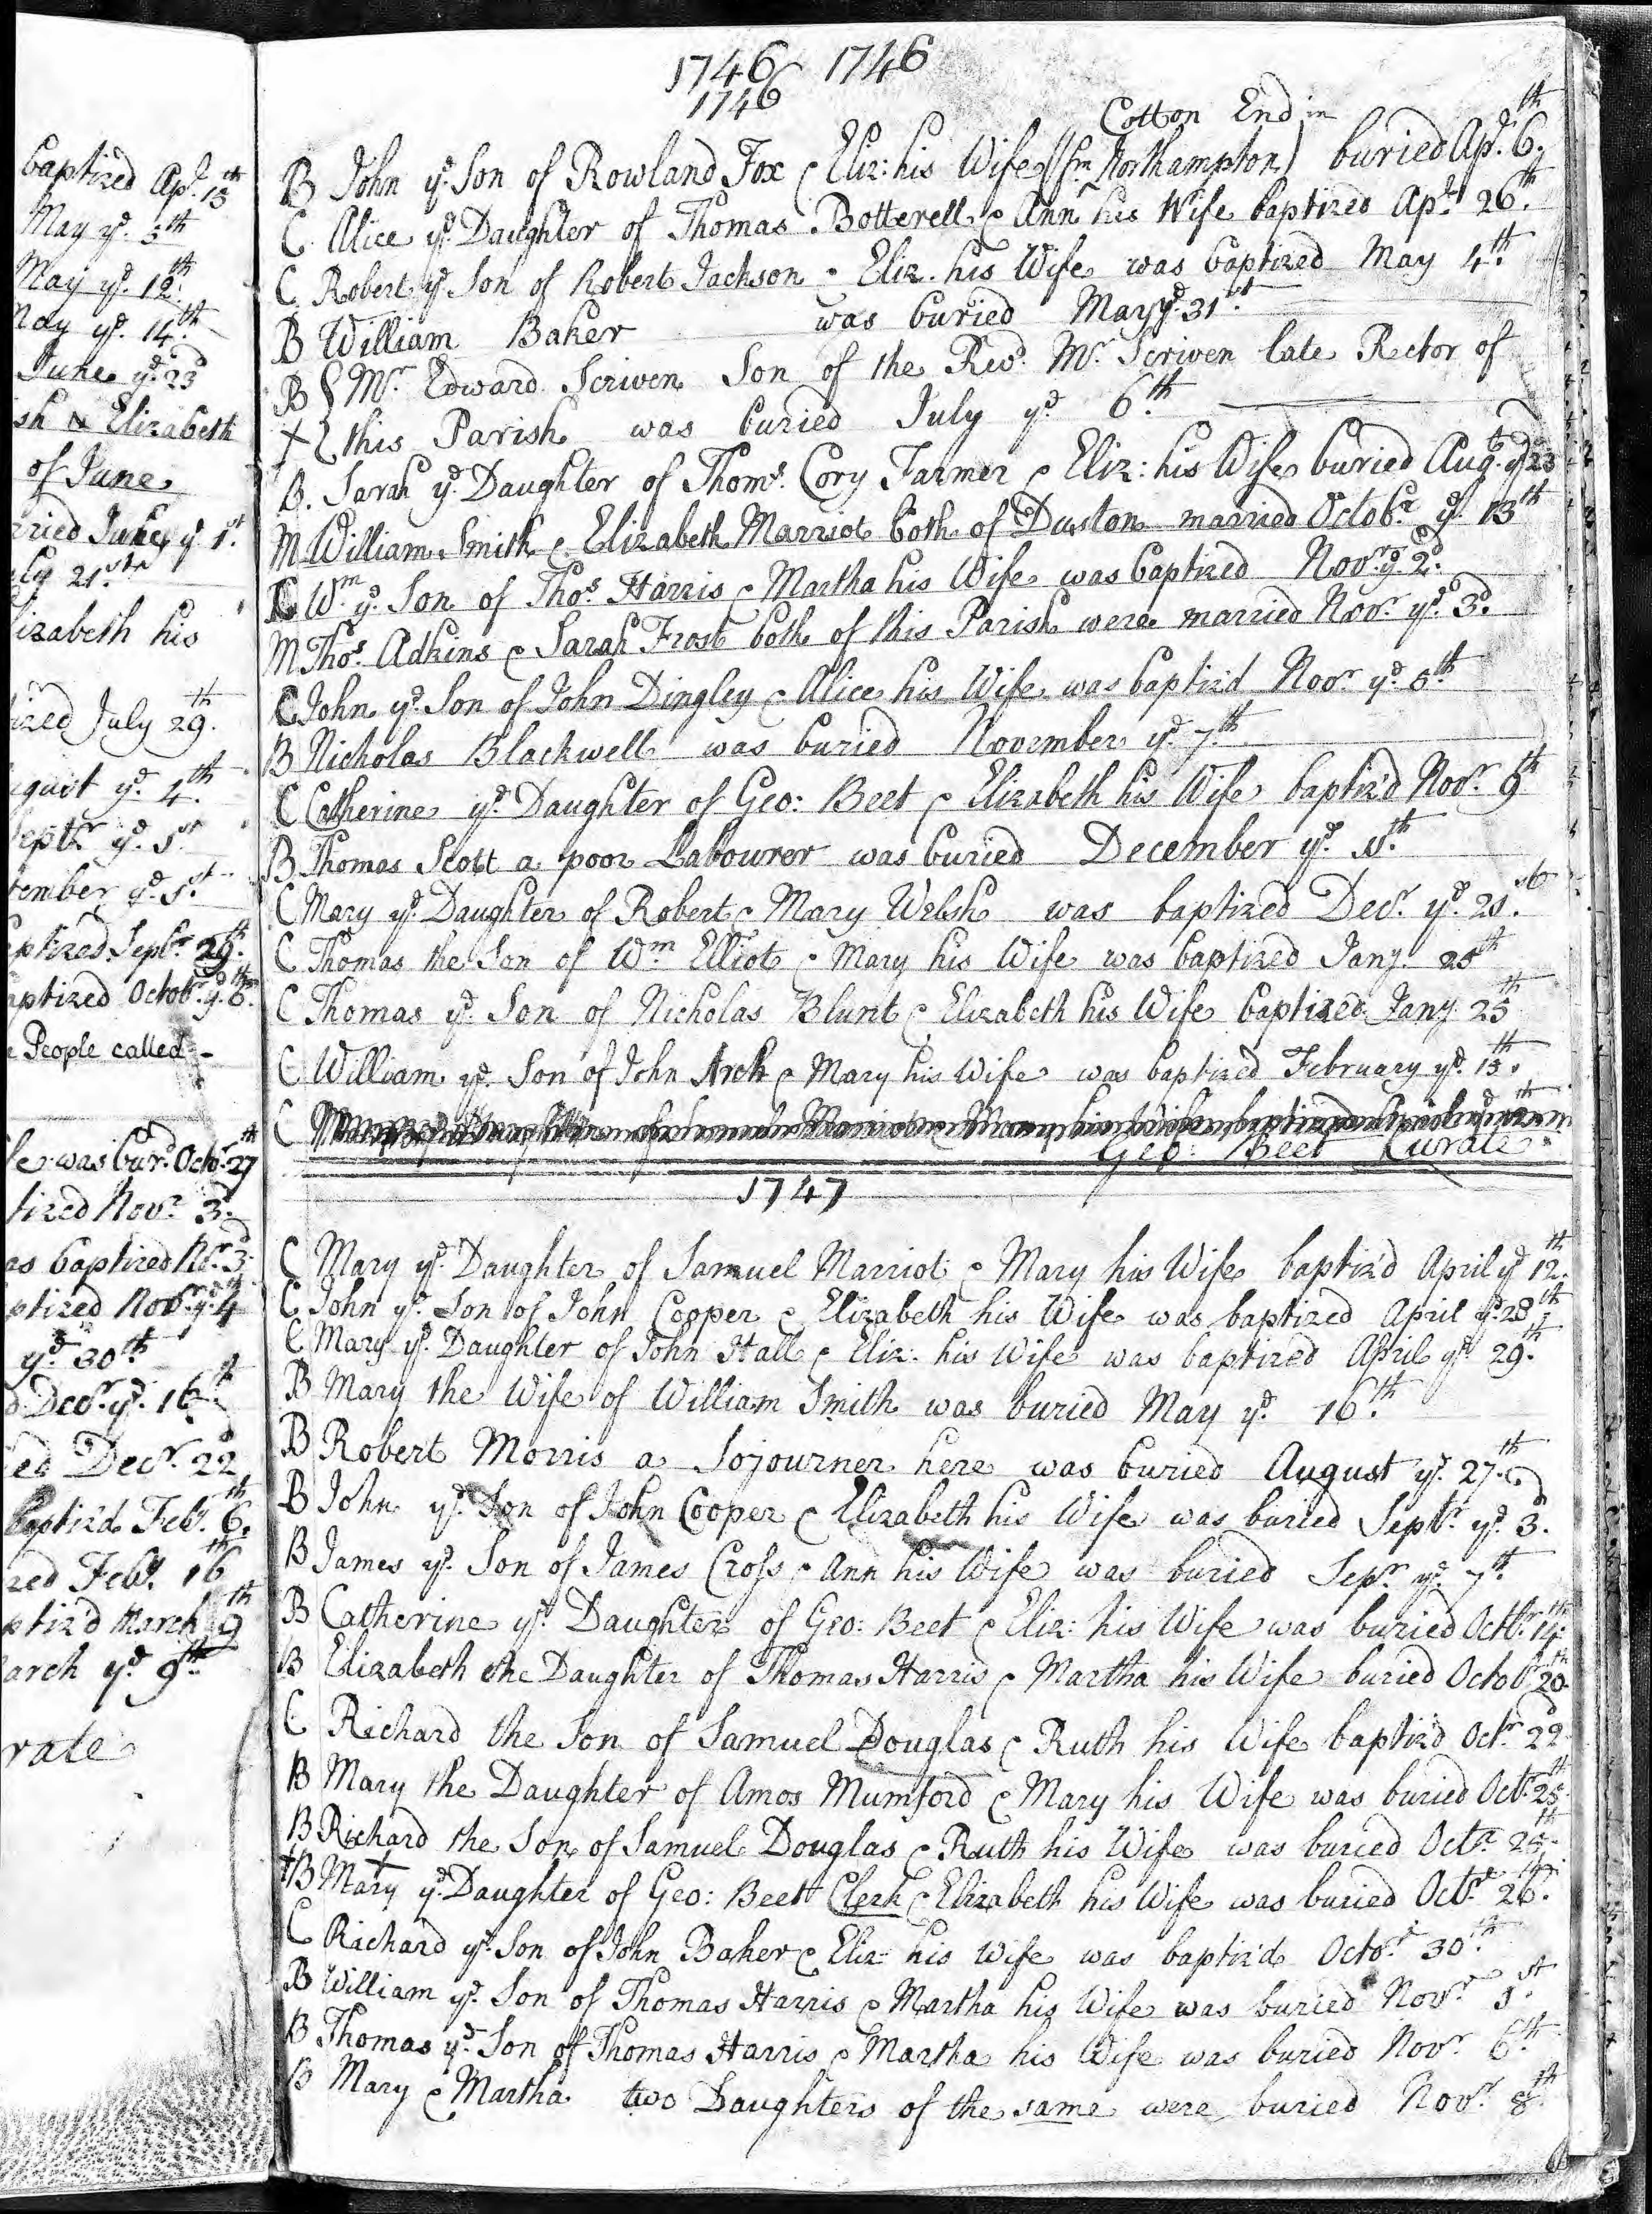 baptized Ap.ˡ 13ᵗʰ
May yᵉ 5ᵗʰ
May yᵉ 12ᵗʰ
May yᵉ 14ᵗʰ
June yᵉ 23ᵈ
sh & Elizabeth
of June
rried June yᵉ 1ˢᵗ
uly 21ˢᵗ
lizabeth his
ized July 29ᵗʰ
ugust yᵉ 4ᵗʰ
Septr yᵉ 1ˢᵗ
tember yᵉ 1ˢᵗ
aptized Septʳ 29ᵗʰ
aptized Octobʳ yᵉ 6ᵗʰ
e People called -
le was burᵈ Octoʳ 27ᵗʰ
tized Novʳ 3ᵈ
as baptized Noʳ 3ᵈ
ptized Novʳ yᵉ 4ᵗʰ
yᵉ 30ᵗʰ
d Decʳ yᵉ 16ᵗʰ
ed Decʳ 22ᵈ
baptiz'd Febʳ 6ᵗʰ
zed Febʸ 16ᵗʰ
ptiz'd March 9ᵗʰ
arch yᵉ 9ᵗʰ
rate
1746 1746
1746
Cotton End in
B John yᵉ Son of Rowland Fox & Eliz: his Wife (fm Northampton) buried Apˡ 6ᵗʰ
C Alice yᵉ Daughter of Thomas Botterell & Ann his Wife baptized Apˡ 26ᵗʰ
C Robert yᵉ Son of Robert Jackson & Eliz. his Wife was baptized May 4ᵗʰ
B William Baker was buried May yᵉ 31ˢᵗ
B { Mʳ Edward Scriven Son of the Revᵈ Mʳ Scriven late Rector of
+ { this Parish was buried July yᵉ 6ᵗʰ
B. Sarah yᵉ Daughter of Thomˢ Cory Farmer & Eliz: his Wife buried Augᵗ yᵉ 23ᵈ
M William Smith & Elizabeth Marriot both of Duston married Octobʳ yᵉ 13ᵗʰ
C Wᵐ yᵉ Son of Thoˢ Harris & Martha his Wife was baptized Novʳ yᵉ 2ᵈ
M Thoˢ Adkins & Sarah Frost both of this Parish were married Novʳ yᵉ 3ᵈ
C John yᵉ Son of John Dingley & Alice his Wife was baptiz'd Novʳ yᵉ 5ᵗʰ
B Nicholas Blackwell was buried November yᵉ 7ᵗʰ
C Catherine yᵉ Daughter of Geo: Beet & Elizabeth his Wife baptiz'd Novʳ 9ᵗʰ
B Thomas Scott a poor Labourer was buried December yᵉ
C Mary yᵉ Daughter of Robert & Mary Welsh was baptized Decʳ yᵉ 21ˢᵗ
C Thomas the Son of Wᵐ Elliot & Mary his Wife was baptized Jany. 25ᵗʰ
C Thomas yᵉ Son of Nicholas Blunt & Elizabeth his Wife baptized Jany 25ᵗʰ
C William yᵉ Son of John Arch & Mary his Wife was baptized February yᵉ 15ᵗʰ
C
Geo: Beet Curate
1747
C Mary yᵉ Daughter of Samuel Marriot & Mary his Wife baptiz'd April yᵉ 12ᵗʰ
C John yᵉ Son of John Cooper & Elizabeth his Wife was baptized April yᵉ 28ᵗʰ
C Mary yᵉ Daughter of John Hall & Eliz: his Wife was baptized April yᵉ 29ᵗʰ
B Mary the Wife of William Smith was buried May yᵉ 16ᵗʰ
B Robert Morris a Sojourner here was buried August yᵉ 27ᵗʰ
B John yᵉ Son of John Cooper & Elizabeth his Wife was buried Septʳ yᵉ 3ᵈ
B James yᵉ Son of James Cross & Ann his Wife was buried Sepʳ yᵉ 7ᵗʰ
B Catherine yᵉ Daughter of Geo: Beet & Eliz: his Wife was buried Octbʳ 14ᵗʰ
B Elizabeth the Daughter of Thomas Harris & Martha his Wife buried Octobʳ 20ᵗʰ
C Richard the Son of Samuel Douglas & Ruth his Wife baptiz'd Octʳ 22ᵈ
B Mary the Daughter of Amos Mumford & Mary his Wife was buried Octʳ 25ᵗʰ
B Richard the Son of Samuel Douglas & Ruth his Wife was buried Octʳ 25ᵗʰ
+B Mary yᵉ Daughter of Geo: Beet Clerk & Elizabeth his Wife was buried Octʳ 26ᵗʰ
C Richard yᵉ Son of John Baker & Eliz: his Wife was baptiz'd Octoʳ 30ᵗʰ
B William yᵉ Son of Thomas Harris & Martha his Wife was buried Novʳ 1ˢᵗ
B Thomas yᵉ Son of Thomas Harris & Martha his Wife was buried Novʳ 6ᵗʰ
B Mary & Martha two Daughters of the same were buried Novʳ 8ᵗʰ